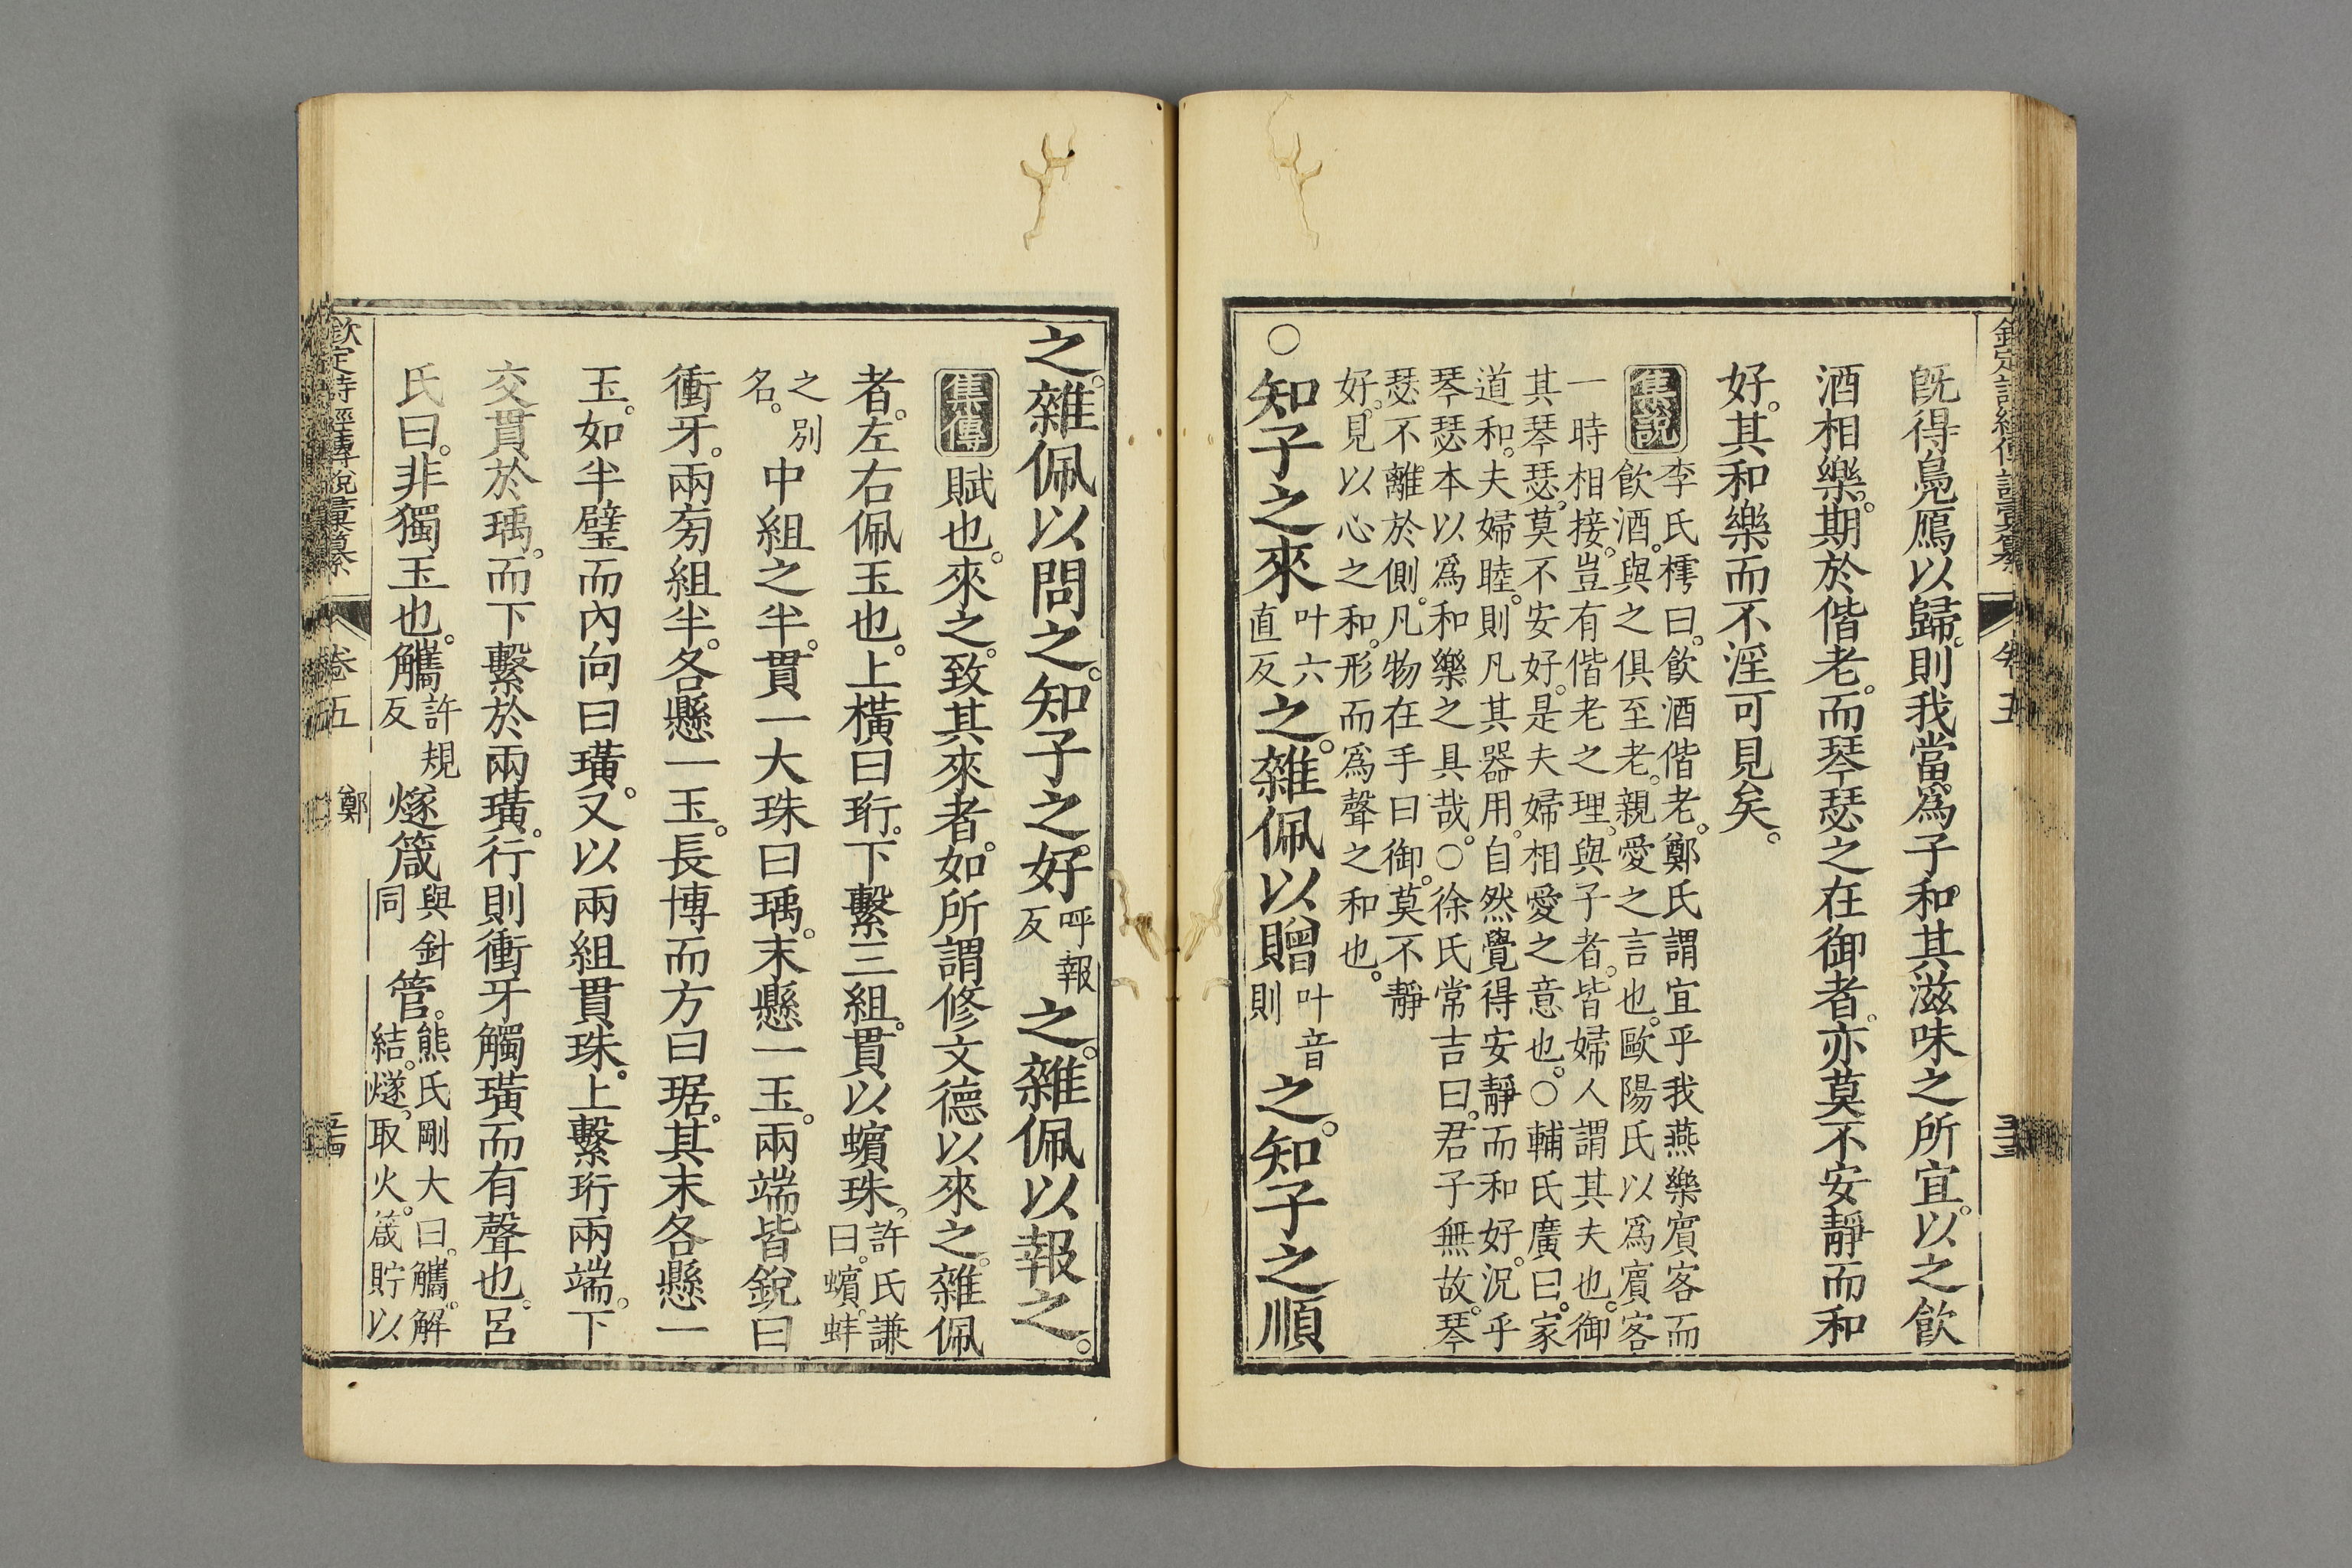 既得鳧鴈以歸。則我當爲子和其滋味之所宜。以之飲
酒相樂。期於偕老。而琴瑟之在御者。亦莫不安靜而和
好。其和樂而不淫可見矣。
集說
李氏樗曰。飲酒偕老。鄭氏謂宜乎我燕樂賓客而
飲酒。與之俱至老。親愛之言也。歐陽氏以爲賓客
一時相接。豈有偕老之理。與子者。皆婦人謂其夫也。御
其琴瑟。莫不安好。是夫婦相愛之意也。○輔氏廣曰。家
道和。夫婦睦。則凡其器用。自然覺得安靜而和好。況乎
琴瑟本以爲和樂之具哉。○徐氏常吉曰。君子無故。琴
瑟不離於側。凡物在手曰御。莫不靜
好。見以心之和。形而爲聲之和也。
○知子之來叶六直反之。雜佩以贈叶音則之。知子之順
之。雜佩以問之。知子之好呼報反之。雜佩以報之。
集傳
賦也。來之。致其來者。如所謂修文德以來之。雜佩
者。左右佩玉也。上橫曰珩。下繫三組。貫以蠙珠。許氏謙曰。蠙。蚌
之別名。中組之半。貫一大珠曰瑀。末懸一玉。兩端皆銳曰
衝牙。兩旁組半。各懸一玉。長博而方曰琚。其末各懸一
玉。如半璧而內向曰璜。又以兩組貫珠。上繫珩兩端。下
交貫於瑀。而下繫於兩璜。行則衝牙觸璜而有聲也。呂
氏曰。非獨玉也。觿許規反燧箴與針同管。熊氏剛大曰。觿。解結。燧。取火。箴貯以
欽定詩經傳說彙纂
卷五
鄭